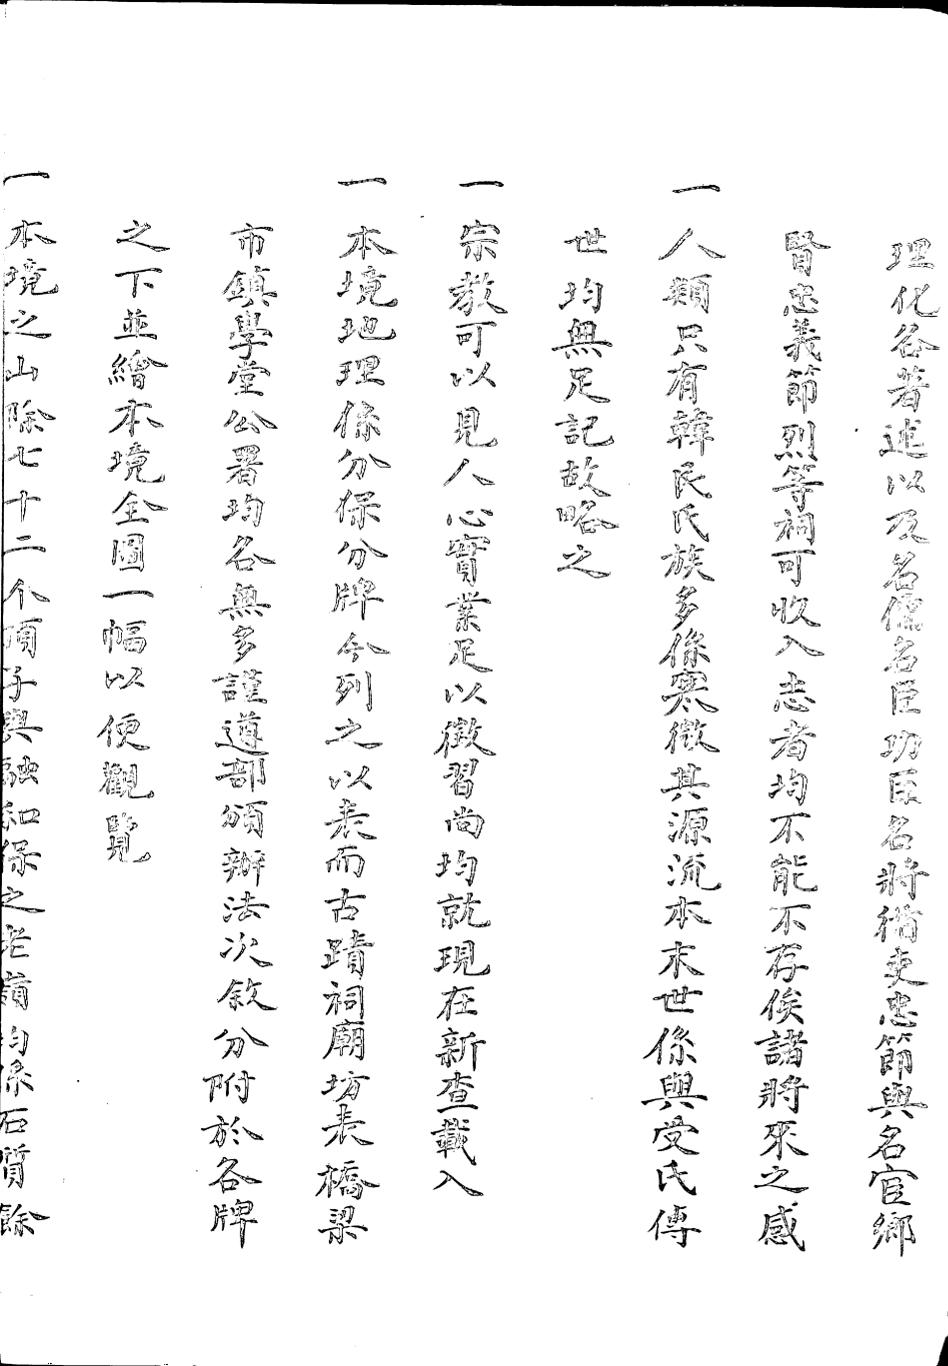 理化各著述以及名儒名臣功臣名將循吏忠節與名宦鄉
賢忠義節烈等祠可收入志者均不能不存俟諸將來之感
一人類只有韓民氏族多係寒微其源流本末世係與受氏傳
世均無足記故略之
一宗教可以見人心實業足以徵習尚均就現在新查載入
一本境地理係分保分牌今列之以表而古蹟祠廟坊表橋梁
市鎮學堂公署均各無多謹遵部頒辦法次敘分附於各牌
之下並繪本境全圖一幅以便觀覽
一本境之山除七十二个頂子與融和保之老嶺均係石質餘